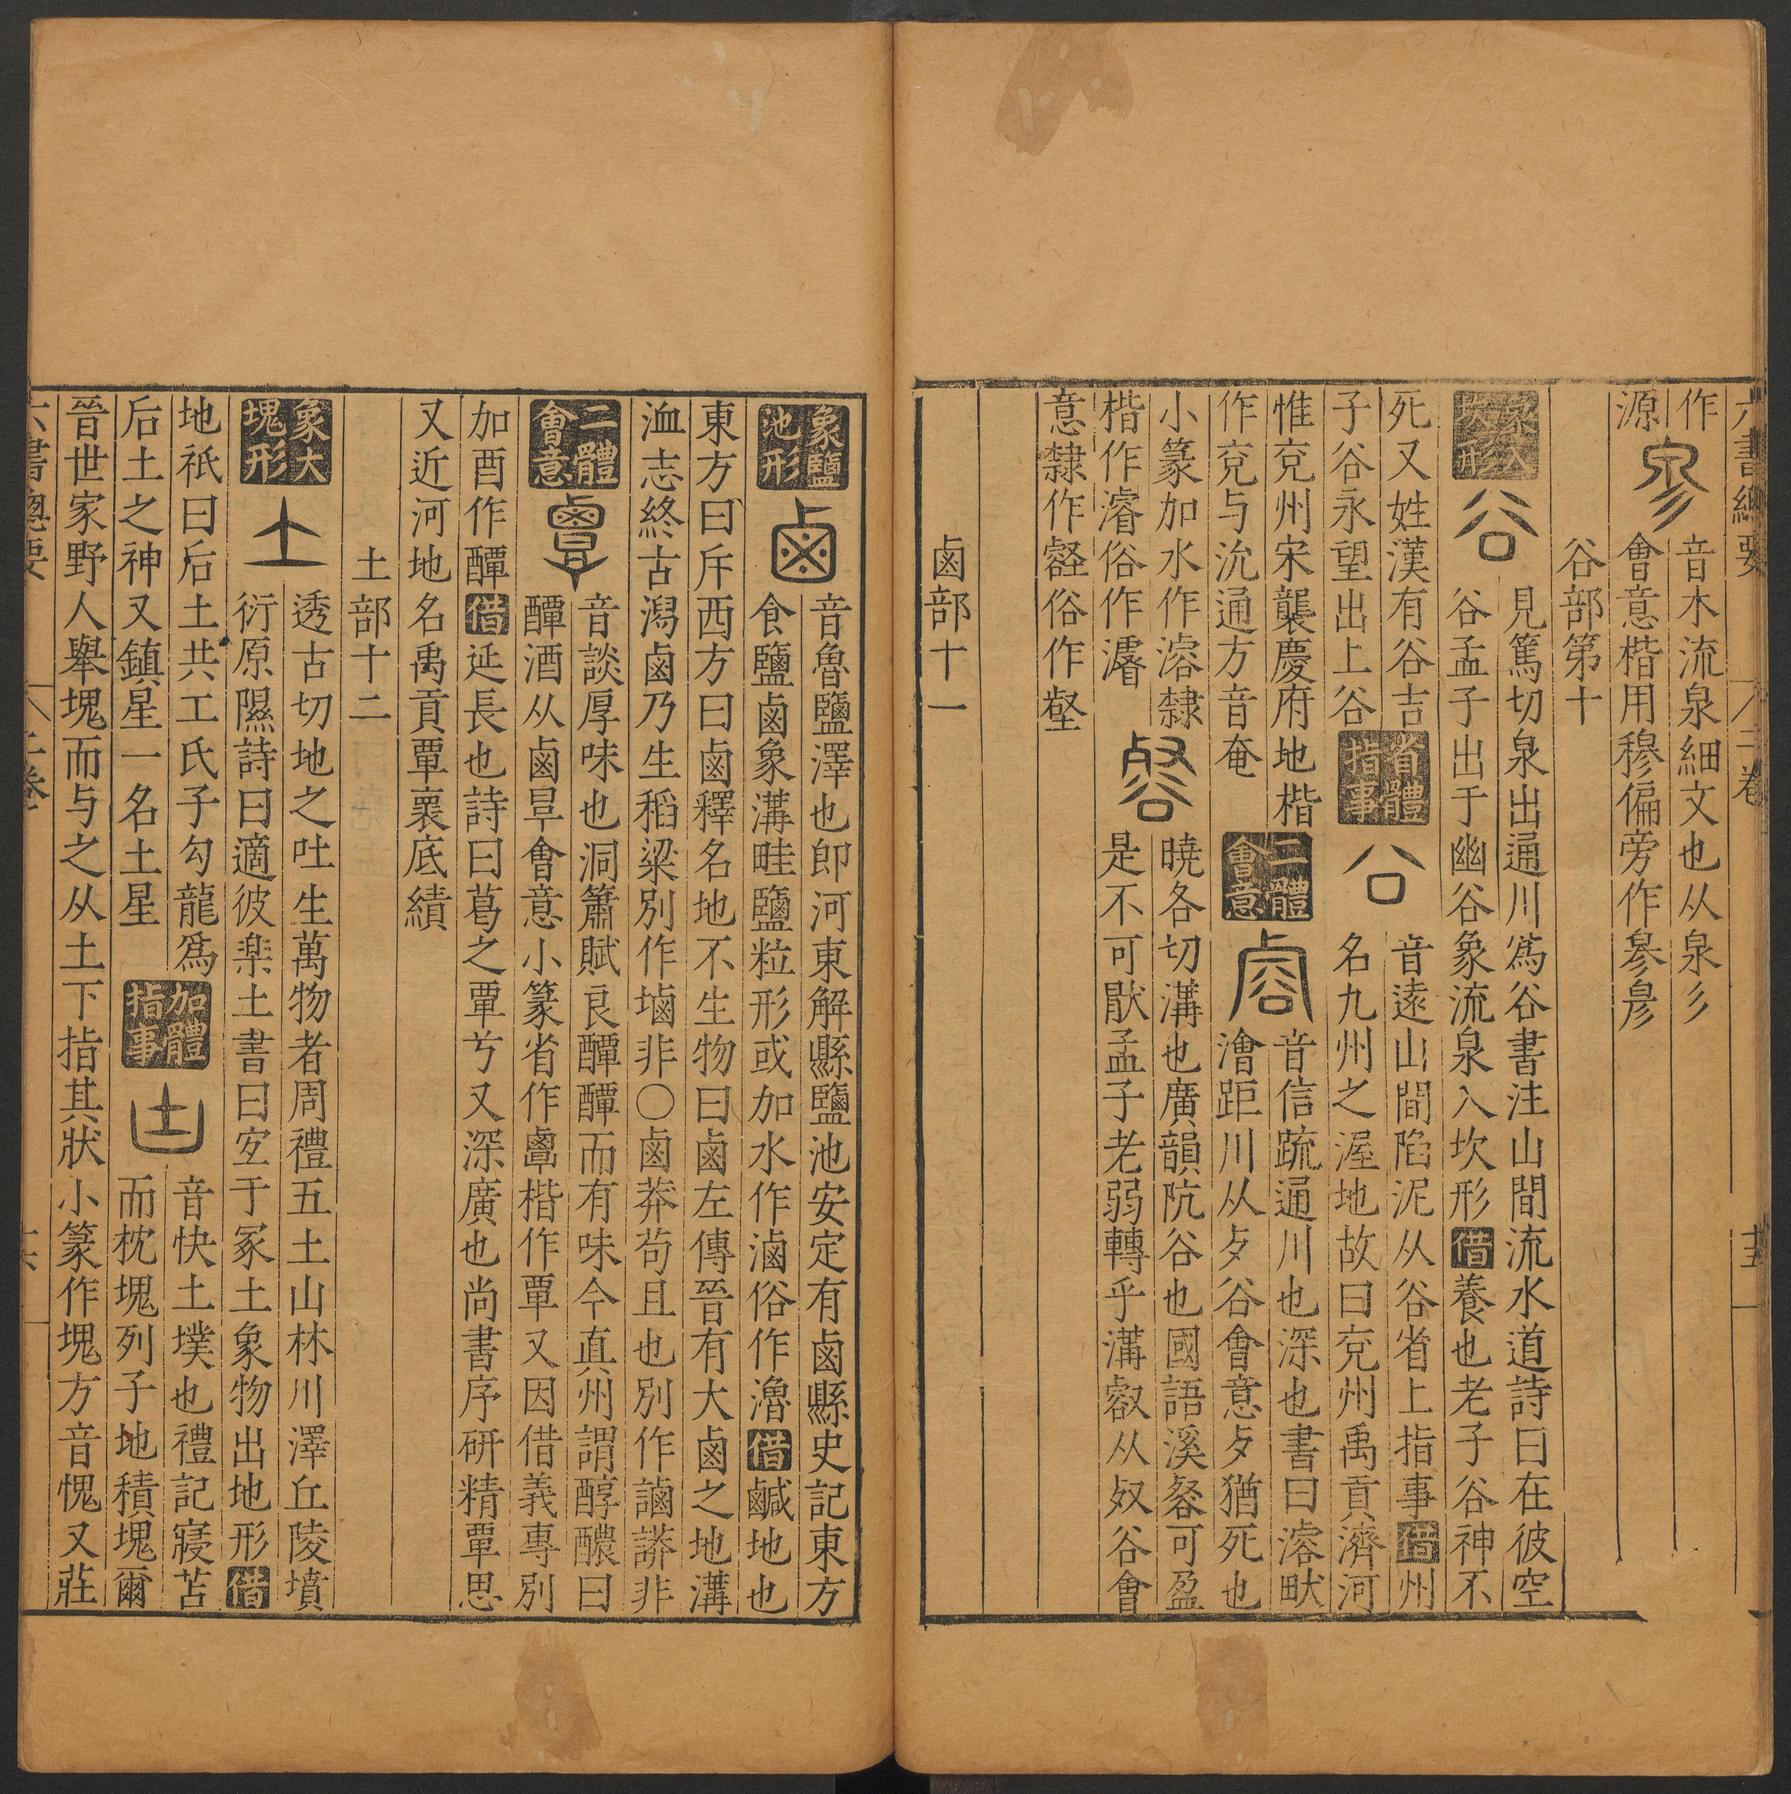 六書總要 二卷 十五
作 音木流泉細文也从泉彡
源 會意楷用穆偏旁作㣎
谷部第十
見篤切泉出通川爲谷書注山間流水道詩曰在彼空
谷孟子出于幽谷象流泉入坎形借養也老子谷神不
死又姓漢有谷吉 省體指事 音遠山間陷泥从谷省上指事借州
子谷永望出上谷 名九州之渥地故曰兖州禹貢濟河
惟兖州宋襲慶府地楷 二體會意 音信疏通川也深也書曰濬畎
作兖与沇通方音奄 澮距川从歺谷會意歺猶死也
小篆加水作濬隸 曉各切溝也廣韻阬谷也國語溪壑可盈
楷作濬俗作濬 是不可猒孟子老弱轉乎溝叡从㕡谷會
意隸作壑俗作壑
鹵部十一
象鹽池形 音魯鹽澤也卽河東解縣鹽池安定有鹵縣史記東方
食鹽鹵象溝畦鹽粒形或加水作滷俗作澛借鹹地也
東方曰斥西方曰鹵釋名地不生物曰鹵左傳晉有大鹵之地溝
洫志終古潟鹵乃生稻粱別作塷非〇鹵莽苟且也別作謿非
二體會意 音談厚味也洞簫賦良醰醰而有味今真州謂醇醲曰
醰酒从鹵㫗會意小篆省作𪉷楷作覃又因借義專別
加酉作醰借延長也詩曰葛之覃兮又深廣也尚書序研精覃思
又近河地名禹貢覃襄底績
土部十二
象大塊形 土 透古切地之吐生萬物者周禮五土山林川澤丘陵墳
衍原隰詩曰適彼楽土書曰宜于冢土象物出地形借
地祇曰后土共工氏子勾龍爲 加體指事 音快土墣也禮記寢苫
后土之神又鎮星一名土星 而枕塊列子地積塊爾
晉世家野人舉塊而与之从土下指其狀小篆作塊方音愧又莊
六書總要 二卷 十六